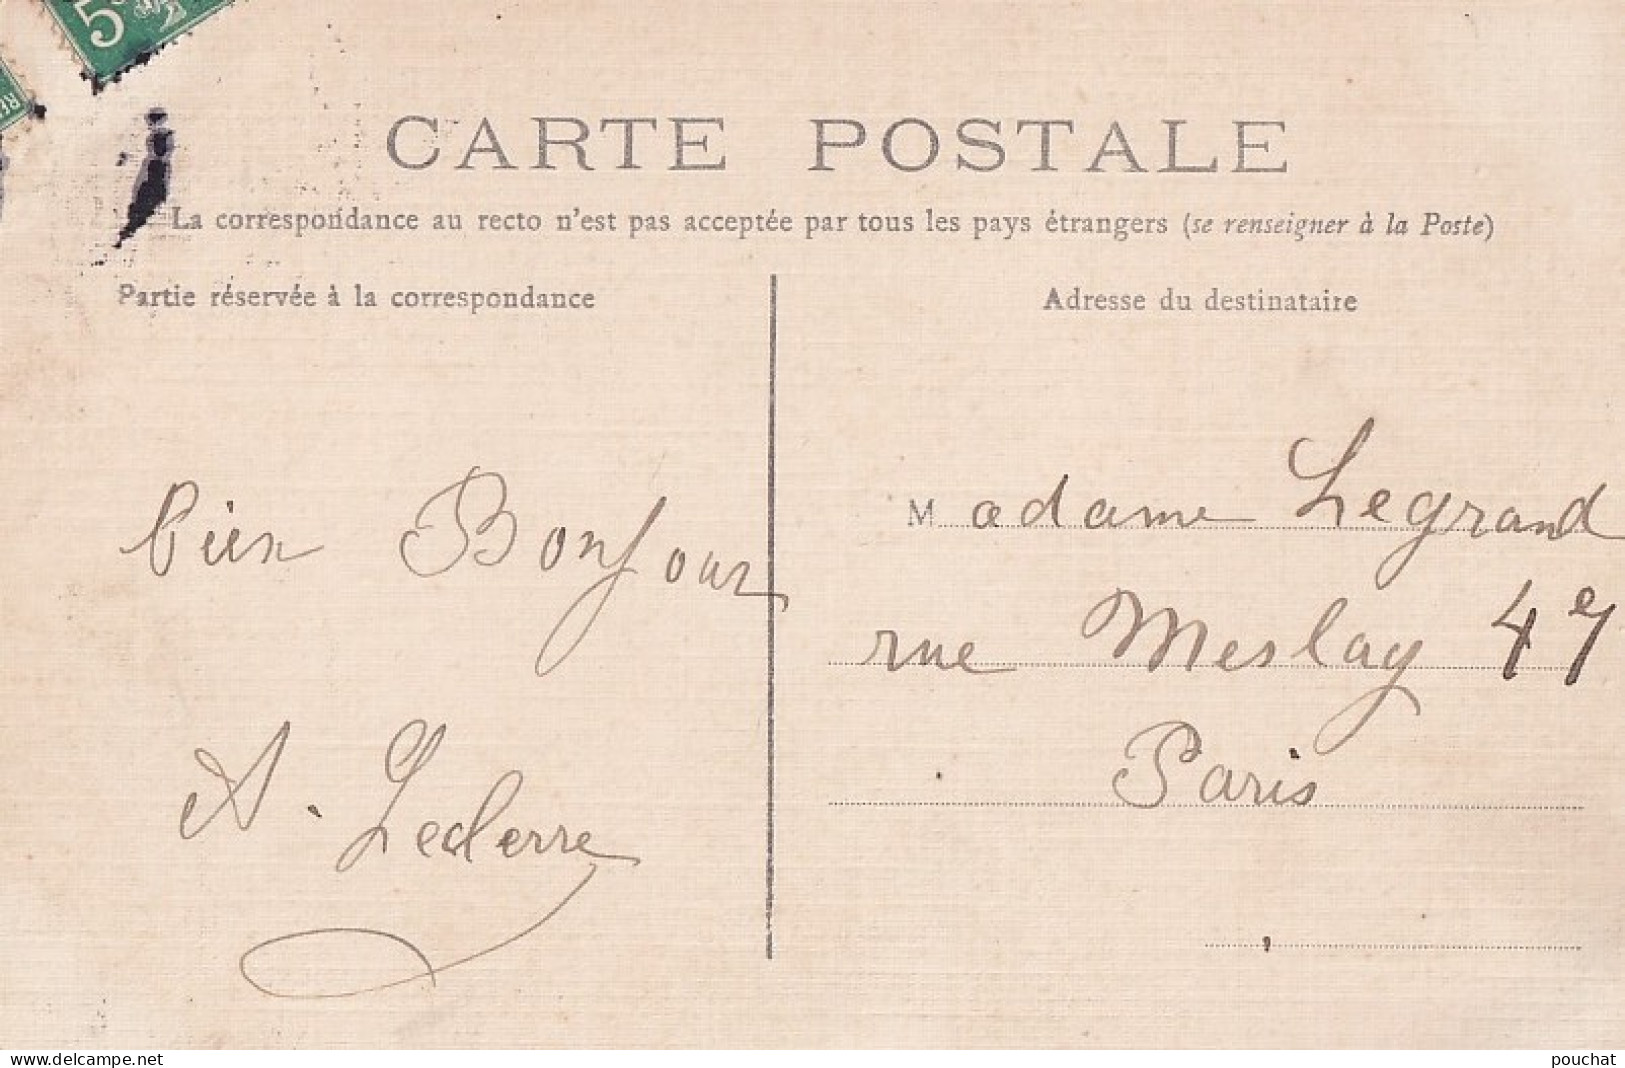 5
CARTE POSTALE
La correspondance au recto n'est pas acceptée par tous les pays étrangers (se renseigner à la Poste)
Partie réservée à la correspondance
Adresse du destinataire
bien Bonjour
A. Leclerre
Madame Legrand
rue Meslay 47
Paris
www.delcampe.net
pouchat